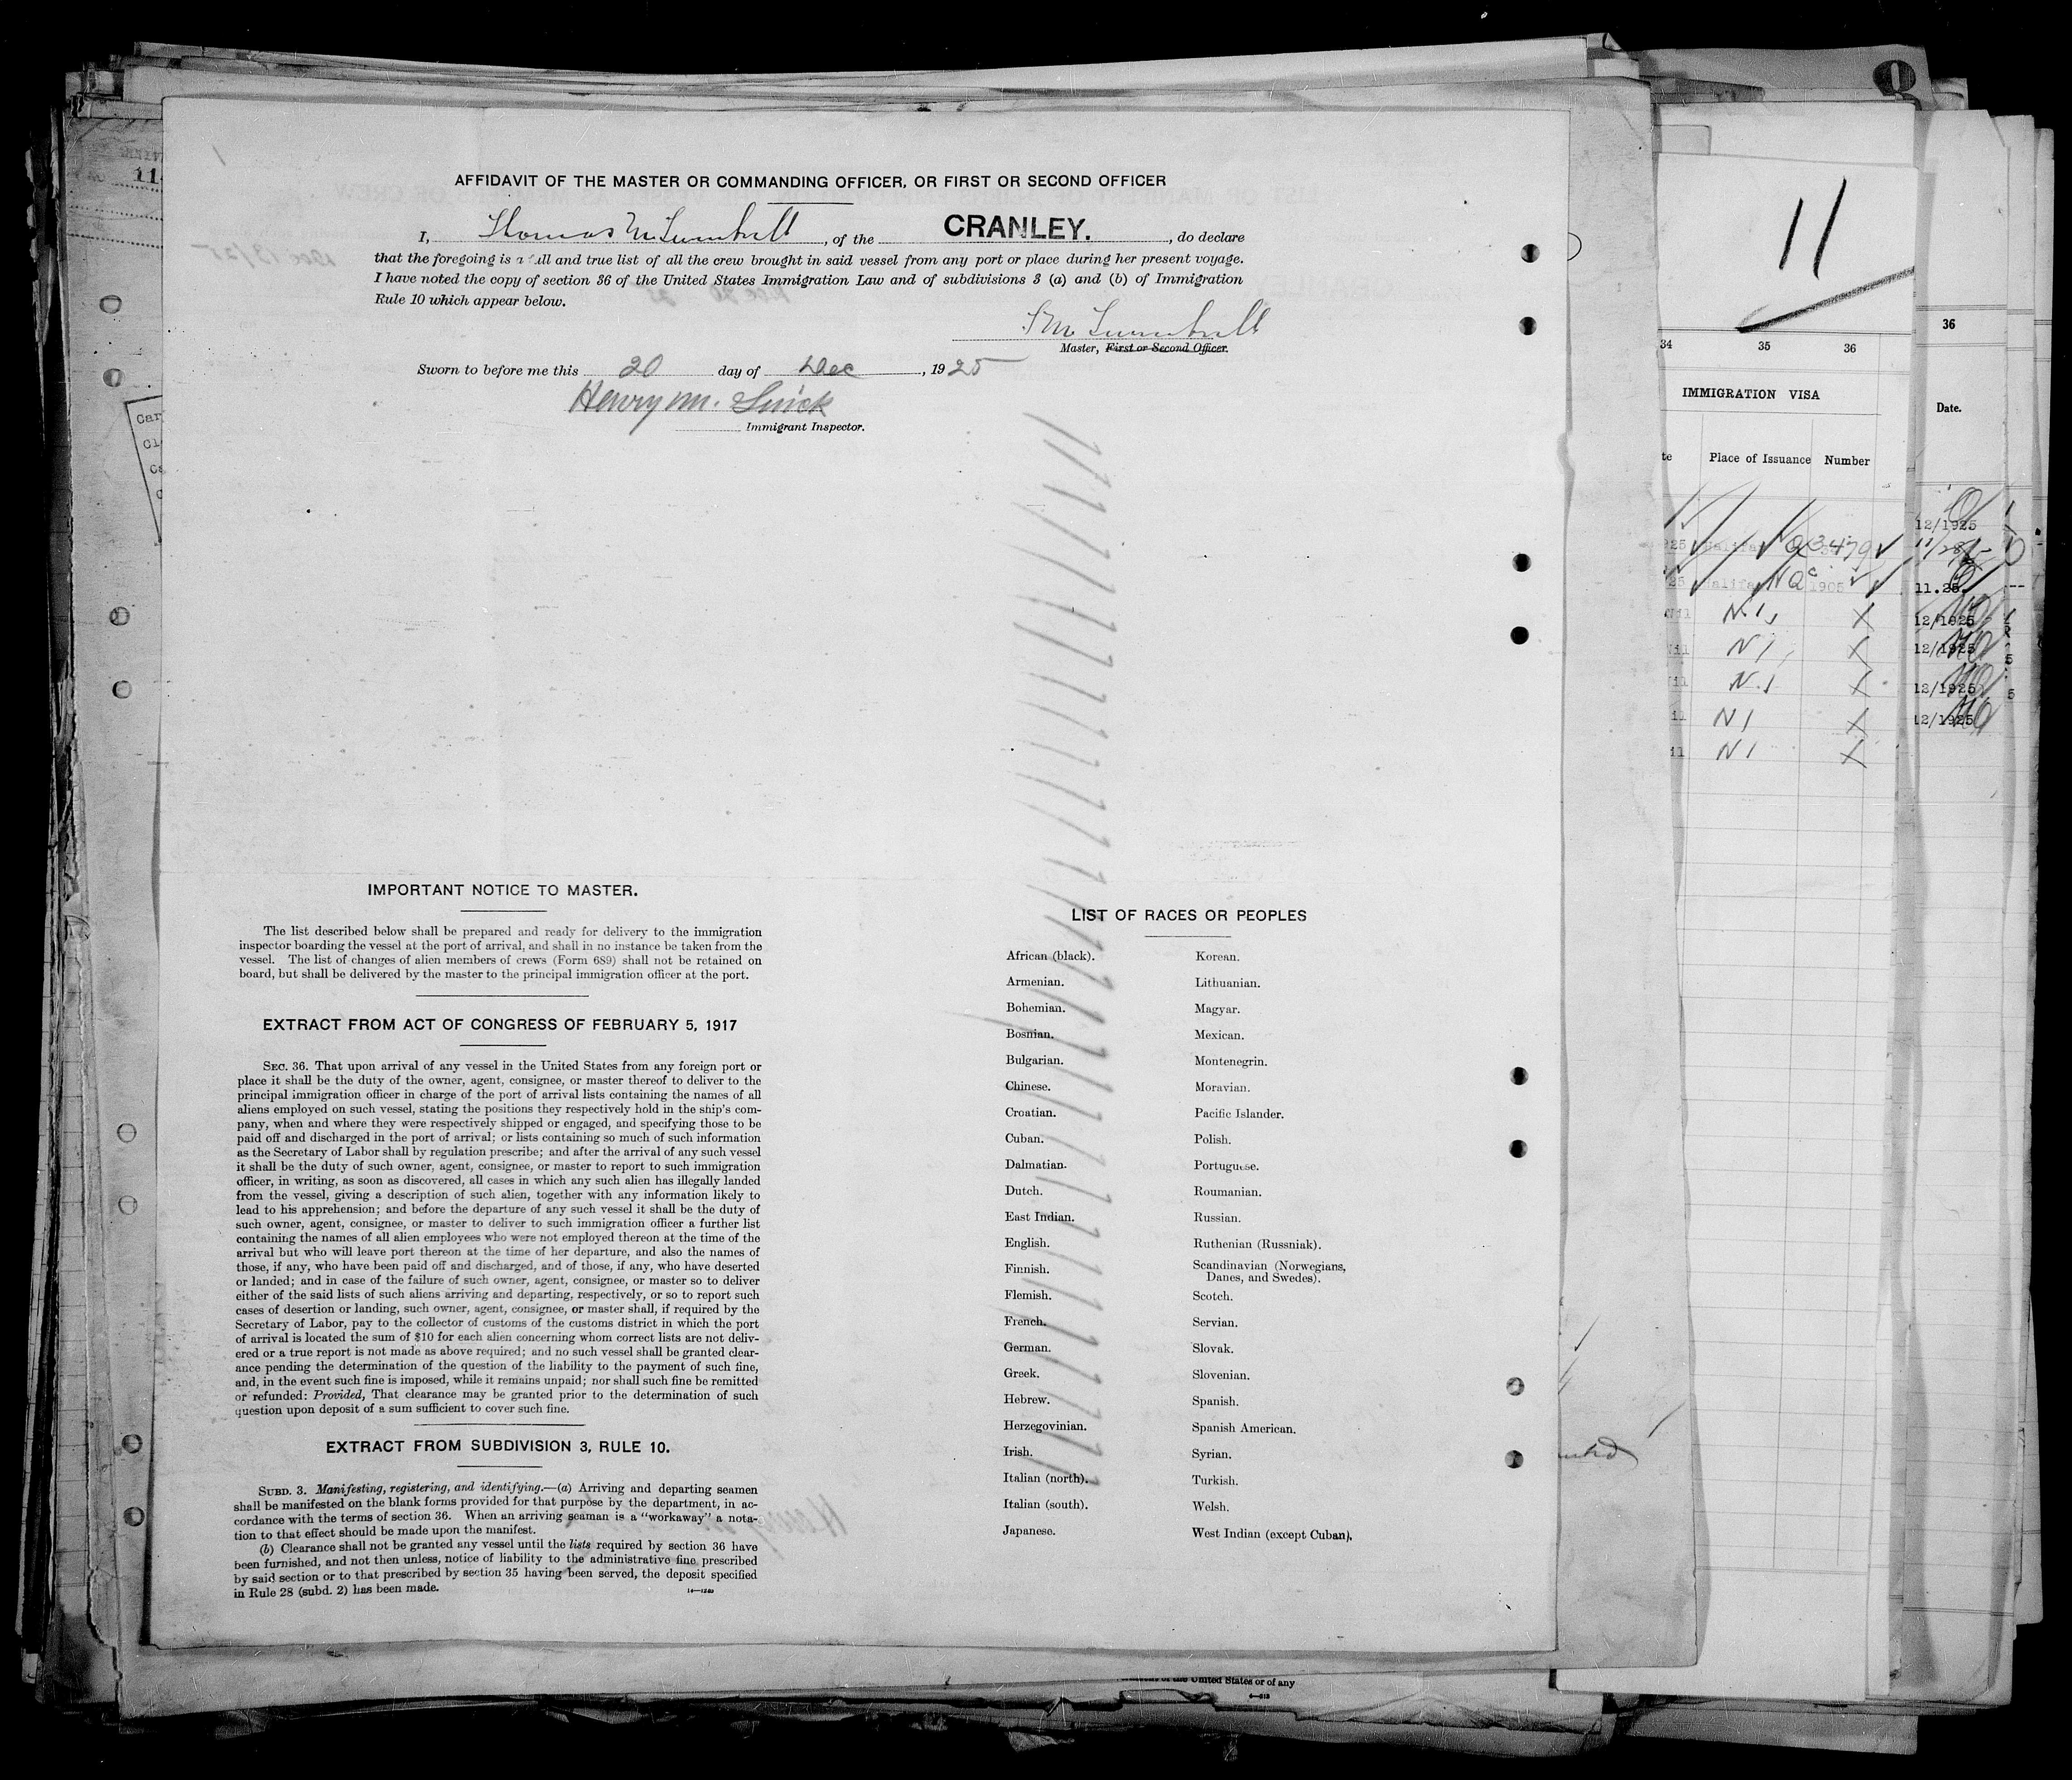 AFFIDAVIT OF THE MASTER OR COMMANDING OFFICER, OR FIRST OR SECOND OFFICER
I, Thomas M Turnbull, of the CRANLEY., do declare
that the foregoing is a full and true list of all the crew brought in said vessel from any port or place during her present voyage.
I have noted the copy of section 36 of the United States Immigration Law and of subdivisions 3 (a) and (b) of Immigration
Rule 10 which appear below.
T M Turnbull
Master, First or Second Officer.
Sworn to before me this 20 day of Dec, 1925
Henry M.
Immigrant Inspector.
IMPORTANT NOTICE TO MASTER.
The list described below shall be prepared and ready for delivery to the immigration
inspector boarding the vessel at the port of arrival, and shall in no instance be taken from the
vessel. The list of changes of alien members of crews (Form 689) shall not be retained on
board, but shall be delivered by the master to the principal immigration officer at the port.
EXTRACT FROM ACT OF CONGRESS OF FEBRUARY 5, 1917
SEC. 36. That upon arrival of any vessel in the United States from any foreign port or
place it shall be the duty of the owner, agent, consignee, or master thereof to deliver to the
principal immigration officer in charge of the port of arrival lists containing the names of all
aliens employed on such vessel, stating the positions they respectively hold in the ship's com-
pany, when and where they were respectively shipped or engaged, and specifying those to be
paid off and discharged in the port of arrival; or lists containing so much of such information
as the Secretary of Labor shall by regulation prescribe; and after the arrival of any such vessel
it shall be the duty of such owner, agent, consignee, or master to report to such immigration
officer, in writing, as soon as discovered, all cases in which any such alien has illegally landed
from the vessel, giving a description of such alien, together with any information likely to
lead to his apprehension; and before the departure of any such vessel it shall be the duty of
such owner, agent, consignee, or master to deliver to such immigration officer a further list
containing the names of all alien employees who were not employed thereon at the time of the
arrival but who will leave port thereon at the time of her departure, and also the names of
those, if any, who have been paid off and discharged, and of those, if any, who have deserted
or landed; and in case of the failure of such owner, agent, consignee, or master so to deliver
either of the said lists of such aliens arriving and departing, respectively, or so to report such
cases of desertion or landing, such owner, agent, consignee, or master shall, if required by the
Secretary of Labor, pay to the collector of customs of the customs district in which the port
of arrival is located the sum of $10 for each alien concerning whom correct lists are not deliv-
ered or a true report is not made as above required; and no such vessel shall be granted clear-
ance pending the determination of the question of the liability to the payment of such fine,
and, in the event such fine is imposed, while it remains unpaid; nor shall such fine be remitted
or refunded: Provided, That clearance may be granted prior to the determination of such
question upon deposit of a sum sufficient to cover such fine.
EXTRACT FROM SUBDIVISION 3, RULE 10.
SUBD. 3. Manifesting, registering, and identifying.—(a) Arriving and departing seamen
shall be manifested on the blank forms provided for that purpose by the department, in ac-
cordance with the terms of section 36. When an arriving seaman is a "workaway" a nota-
tion to that effect should be made upon the manifest.
(b) Clearance shall not be granted any vessel until the lists required by section 36 have
been furnished, and not then unless, notice of liability to the administrative fine prescribed
by said section or to that prescribed by section 35 having been served, the deposit specified
in Rule 28 (subd. 2) has been made.
14—1240
LIST OF RACES OR PEOPLES
African (black).
Armenian.
Bohemian.
Bosnian.
Bulgarian.
Chinese.
Croatian.
Cuban.
Dalmatian.
Dutch.
East Indian.
English.
Finnish.
Flemish.
French.
German.
Greek.
Hebrew.
Herzegovinian.
Irish.
Italian (north).
Italian (south).
Japanese.
Korean.
Lithuanian.
Magyar.
Mexican.
Montenegrin.
Moravian.
Pacific Islander.
Polish.
Portuguese.
Roumanian.
Russian.
Ruthenian (Russniak).
Scandinavian (Norwegians,
Danes, and Swedes).
Scotch.
Servian.
Slovak.
Slovenian.
Spanish.
Spanish American.
Syrian.
Turkish.
Welsh.
West Indian (except Cuban).
11
34 35 36
IMMIGRATION VISA
Place of Issuance Number
3479
1905
N.I.
N I
N.I
N I
N I
36
Date.
12/1925
11.25
12/1925
12/1925
12/1925
12/1925
of the United States or of any